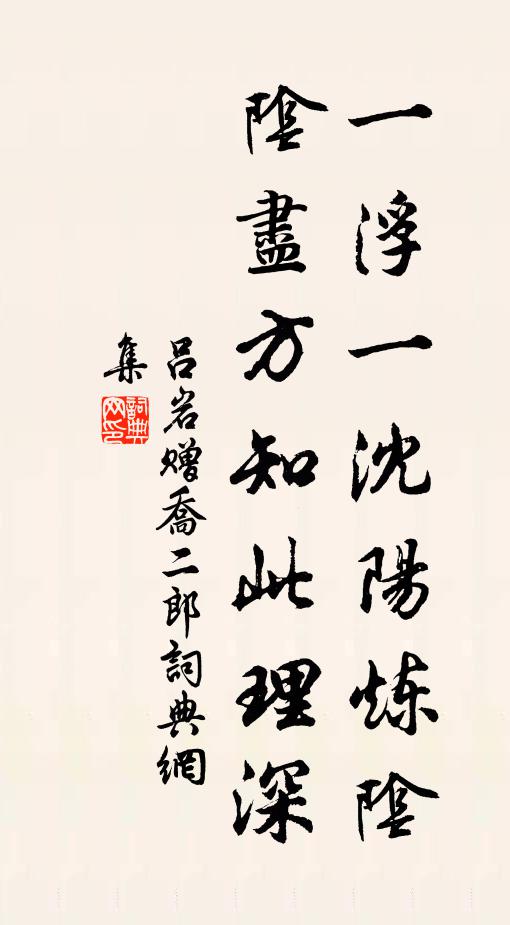 一浮一沈陽炼陰
陰盡方知此理深
吕岩赠喬二郎詞典網
集
詞典网印